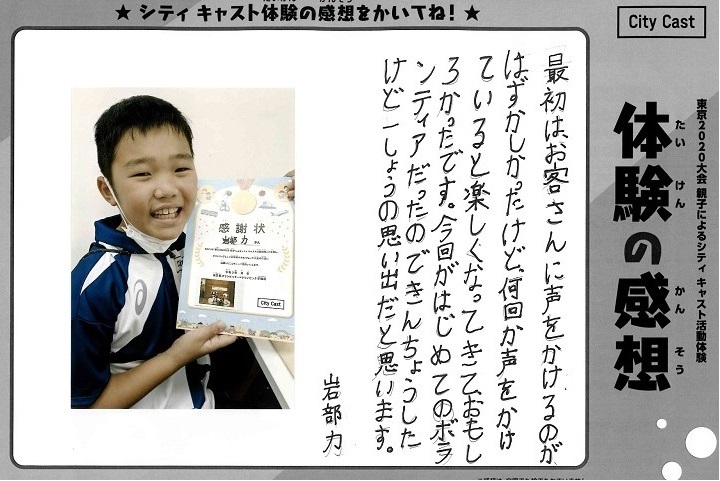 ★ シティ キャスト体験の感想をかいてね! ★
City Cast
東京2020大会 親子によるシティ キャスト活動体験
体験の感想
たい けん かん そう
最初は、お客さんに声をかけるのが
はずかしかったけど、何回か声をかけ
ていると楽しくなってきて、おもし
ろかったです。今回がはじめてのボラ
ンティアだったのできんちょうした
けど一しょうの思い出だと思います。
岩部力
感謝状
岩部 力 さん
City Cast